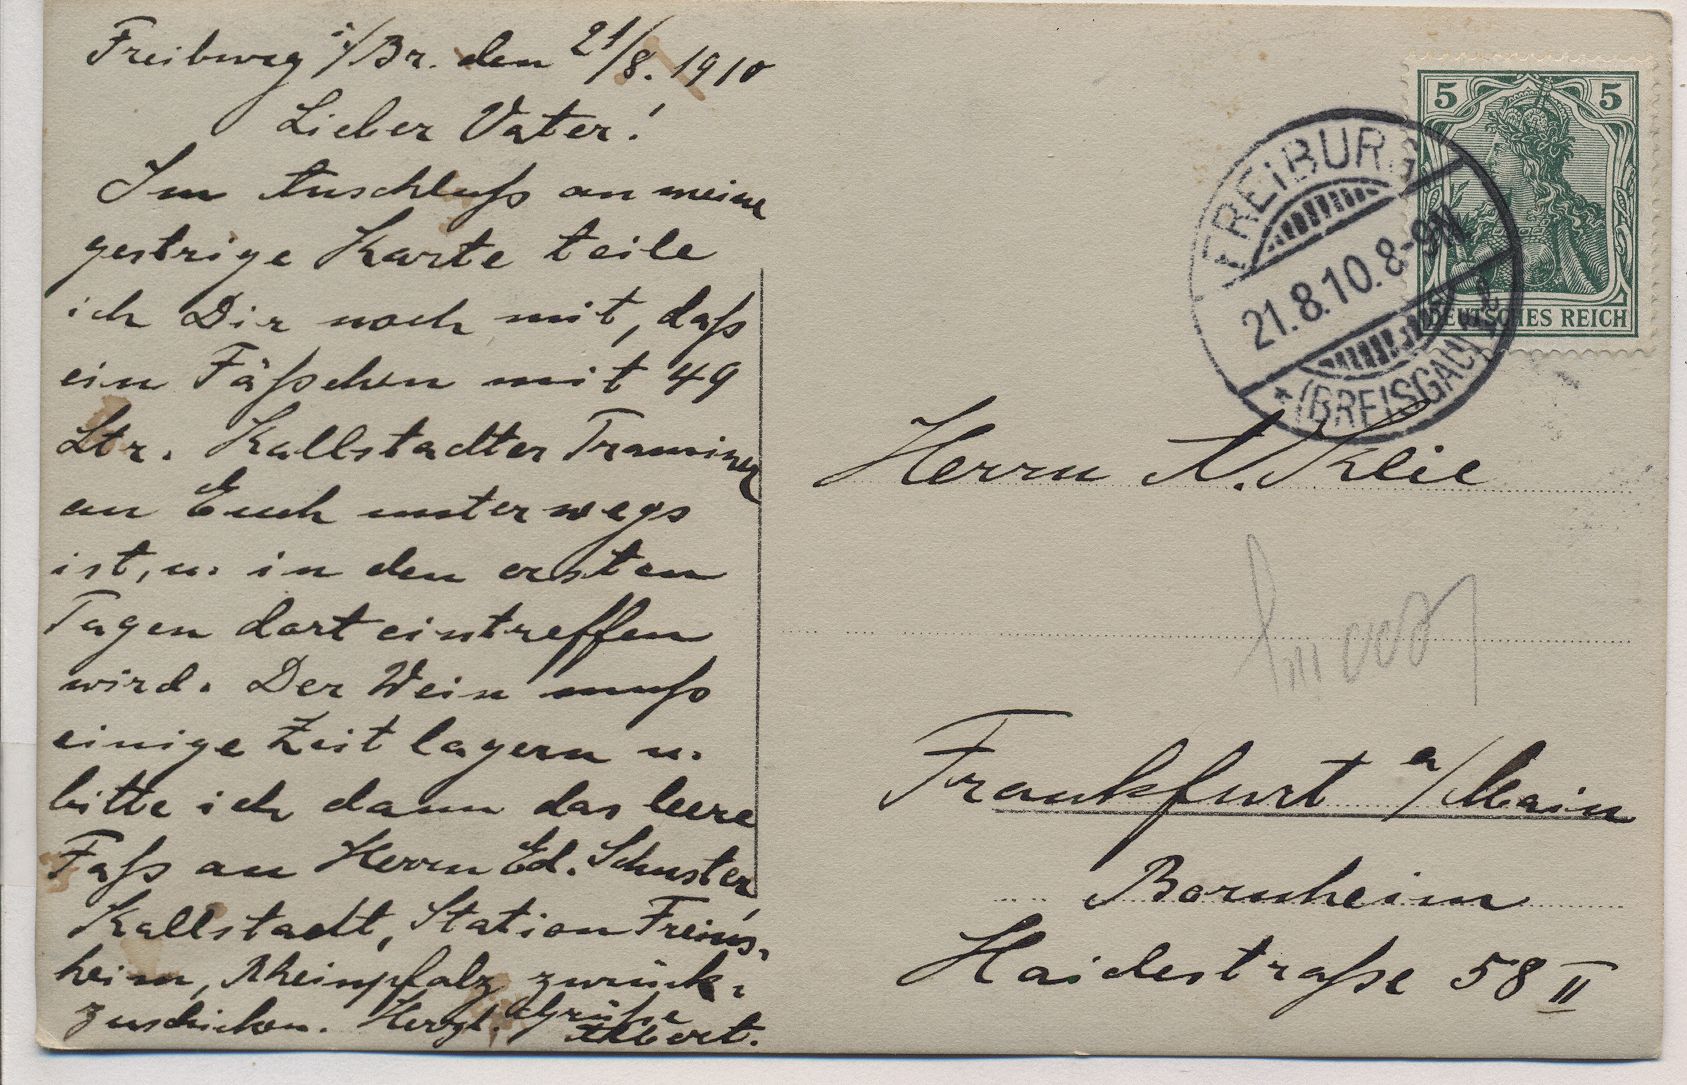 Freiburg i/Br. den 21/8. 1910
Lieber Vater!
Im Anschluß an meine
gestrige Karte teile
ich Dir noch mit, daß
ein Fäßchen mit 49
Ltr. Kallstadter Traminer
an Euch unterwegs
ist, u. in den ersten
Tagen dort eintreffen
wird. Der Wein muß
einige Zeit lagern u.
bitte ich dann das leere
Faß an Herrn Ed. Schuster
Kallstadt, Station Freins-
heim, Rheinpfalz zurück-
zuschicken. Herzl. Grüße
Albert.
5 5
DEUTSCHES REICH
FREIBURG
21.8.10. 8-9N
* (BREISGAU) 2
Herrn A. Klie
Frankfurt a/Main
Bornheim
Haidestraße 58 II